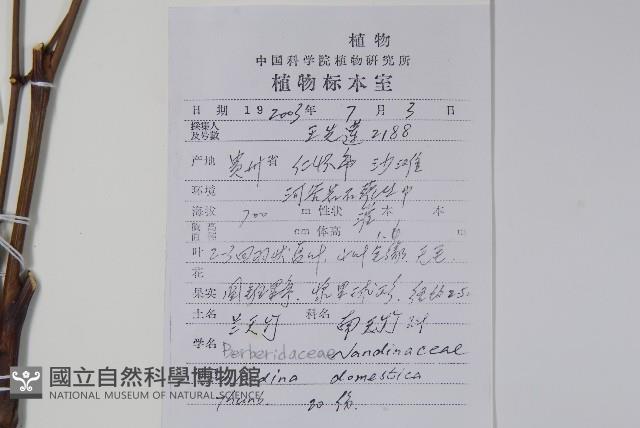 植物
中国科学院植物研究所
植物标本室
日期 19 2003年 7月 3日
採集人及号数 王先莲 2188
产地 贵州省 仁怀市 沙滩
环境 河岸岩石
海拔 700 m 性状 灌木 本
胸高直径 cm 体高 1.6 m
叶 2-3回羽状复叶, 小叶全缘, 无毛
花
果实 圆锥果序. 浆果球形,
土名 兰天竹 科名 南天竹科
学名 Berberidaceae Nandinaceae
domestica
Thunb. 20份
國立自然科學博物館
NATIONAL MUSEUM OF NATURAL SCIENCE